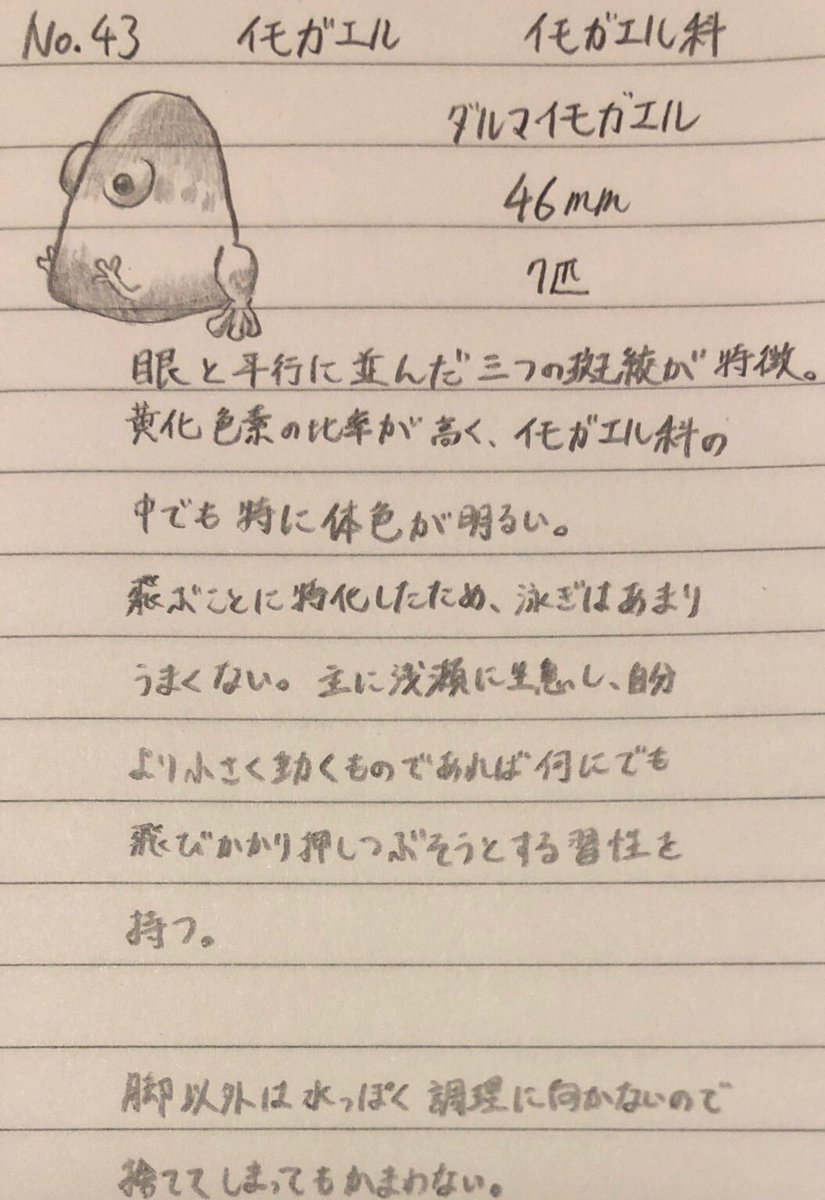 No.43 イモガエル イモガエル科
ダルマイモガエル
46mm
7匹
眼と平行に並んだ三つの斑紋が特徴。
黄化色素の比率が高く、イモガエル科の
中でも特に体色が明るい。
飛ぶことに特化したため、泳ぎはあまり
うまくない。主に浅瀬に生息し、自分
より小さく動くものであれば何にでも
飛びかかり押しつぶそうとする習性を
持つ。
脚以外は水っぽく調理に向かないので
捨ててしまってもかまわない。